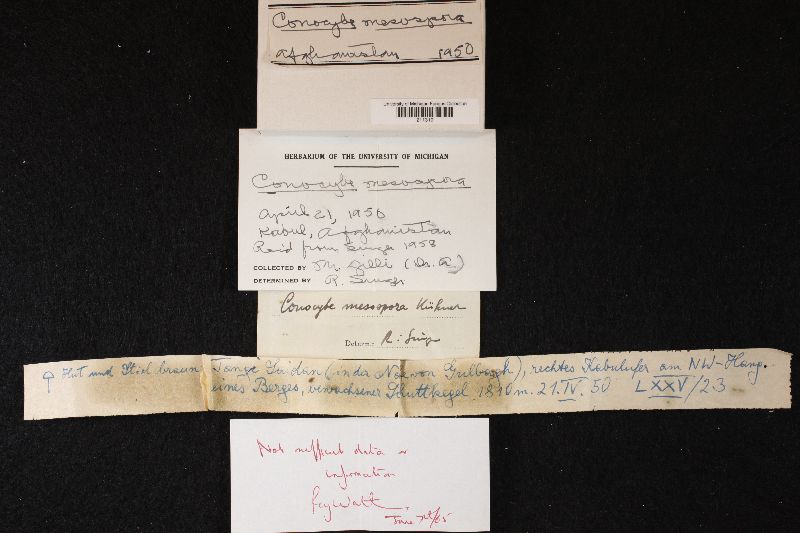 Conocybe mesospora
Afghanistan 1950
University of Michigan Fungus Collection
HERBARIUM OF THE UNIVERSITY OF MICHIGAN
Conocybe mesospora
April 21, 1950
Kabul, Afghanistan
Rec'd from Singer 1958
COLLECTED BY Gilli (Dr. A.)
DETERMINED BY R. Singer
Conocybe mesospora Kühner
Determ.: R. Sing
Hut und Stiel braun Tange (inda von Gulbagh), rechtes Kabulufer am NW-Hang
eines Berges, verwachsener Schuttkegel 1810 m. 21.IV.50 LXXV/23
Not sufficient data or
information
Roy Watling
June /85